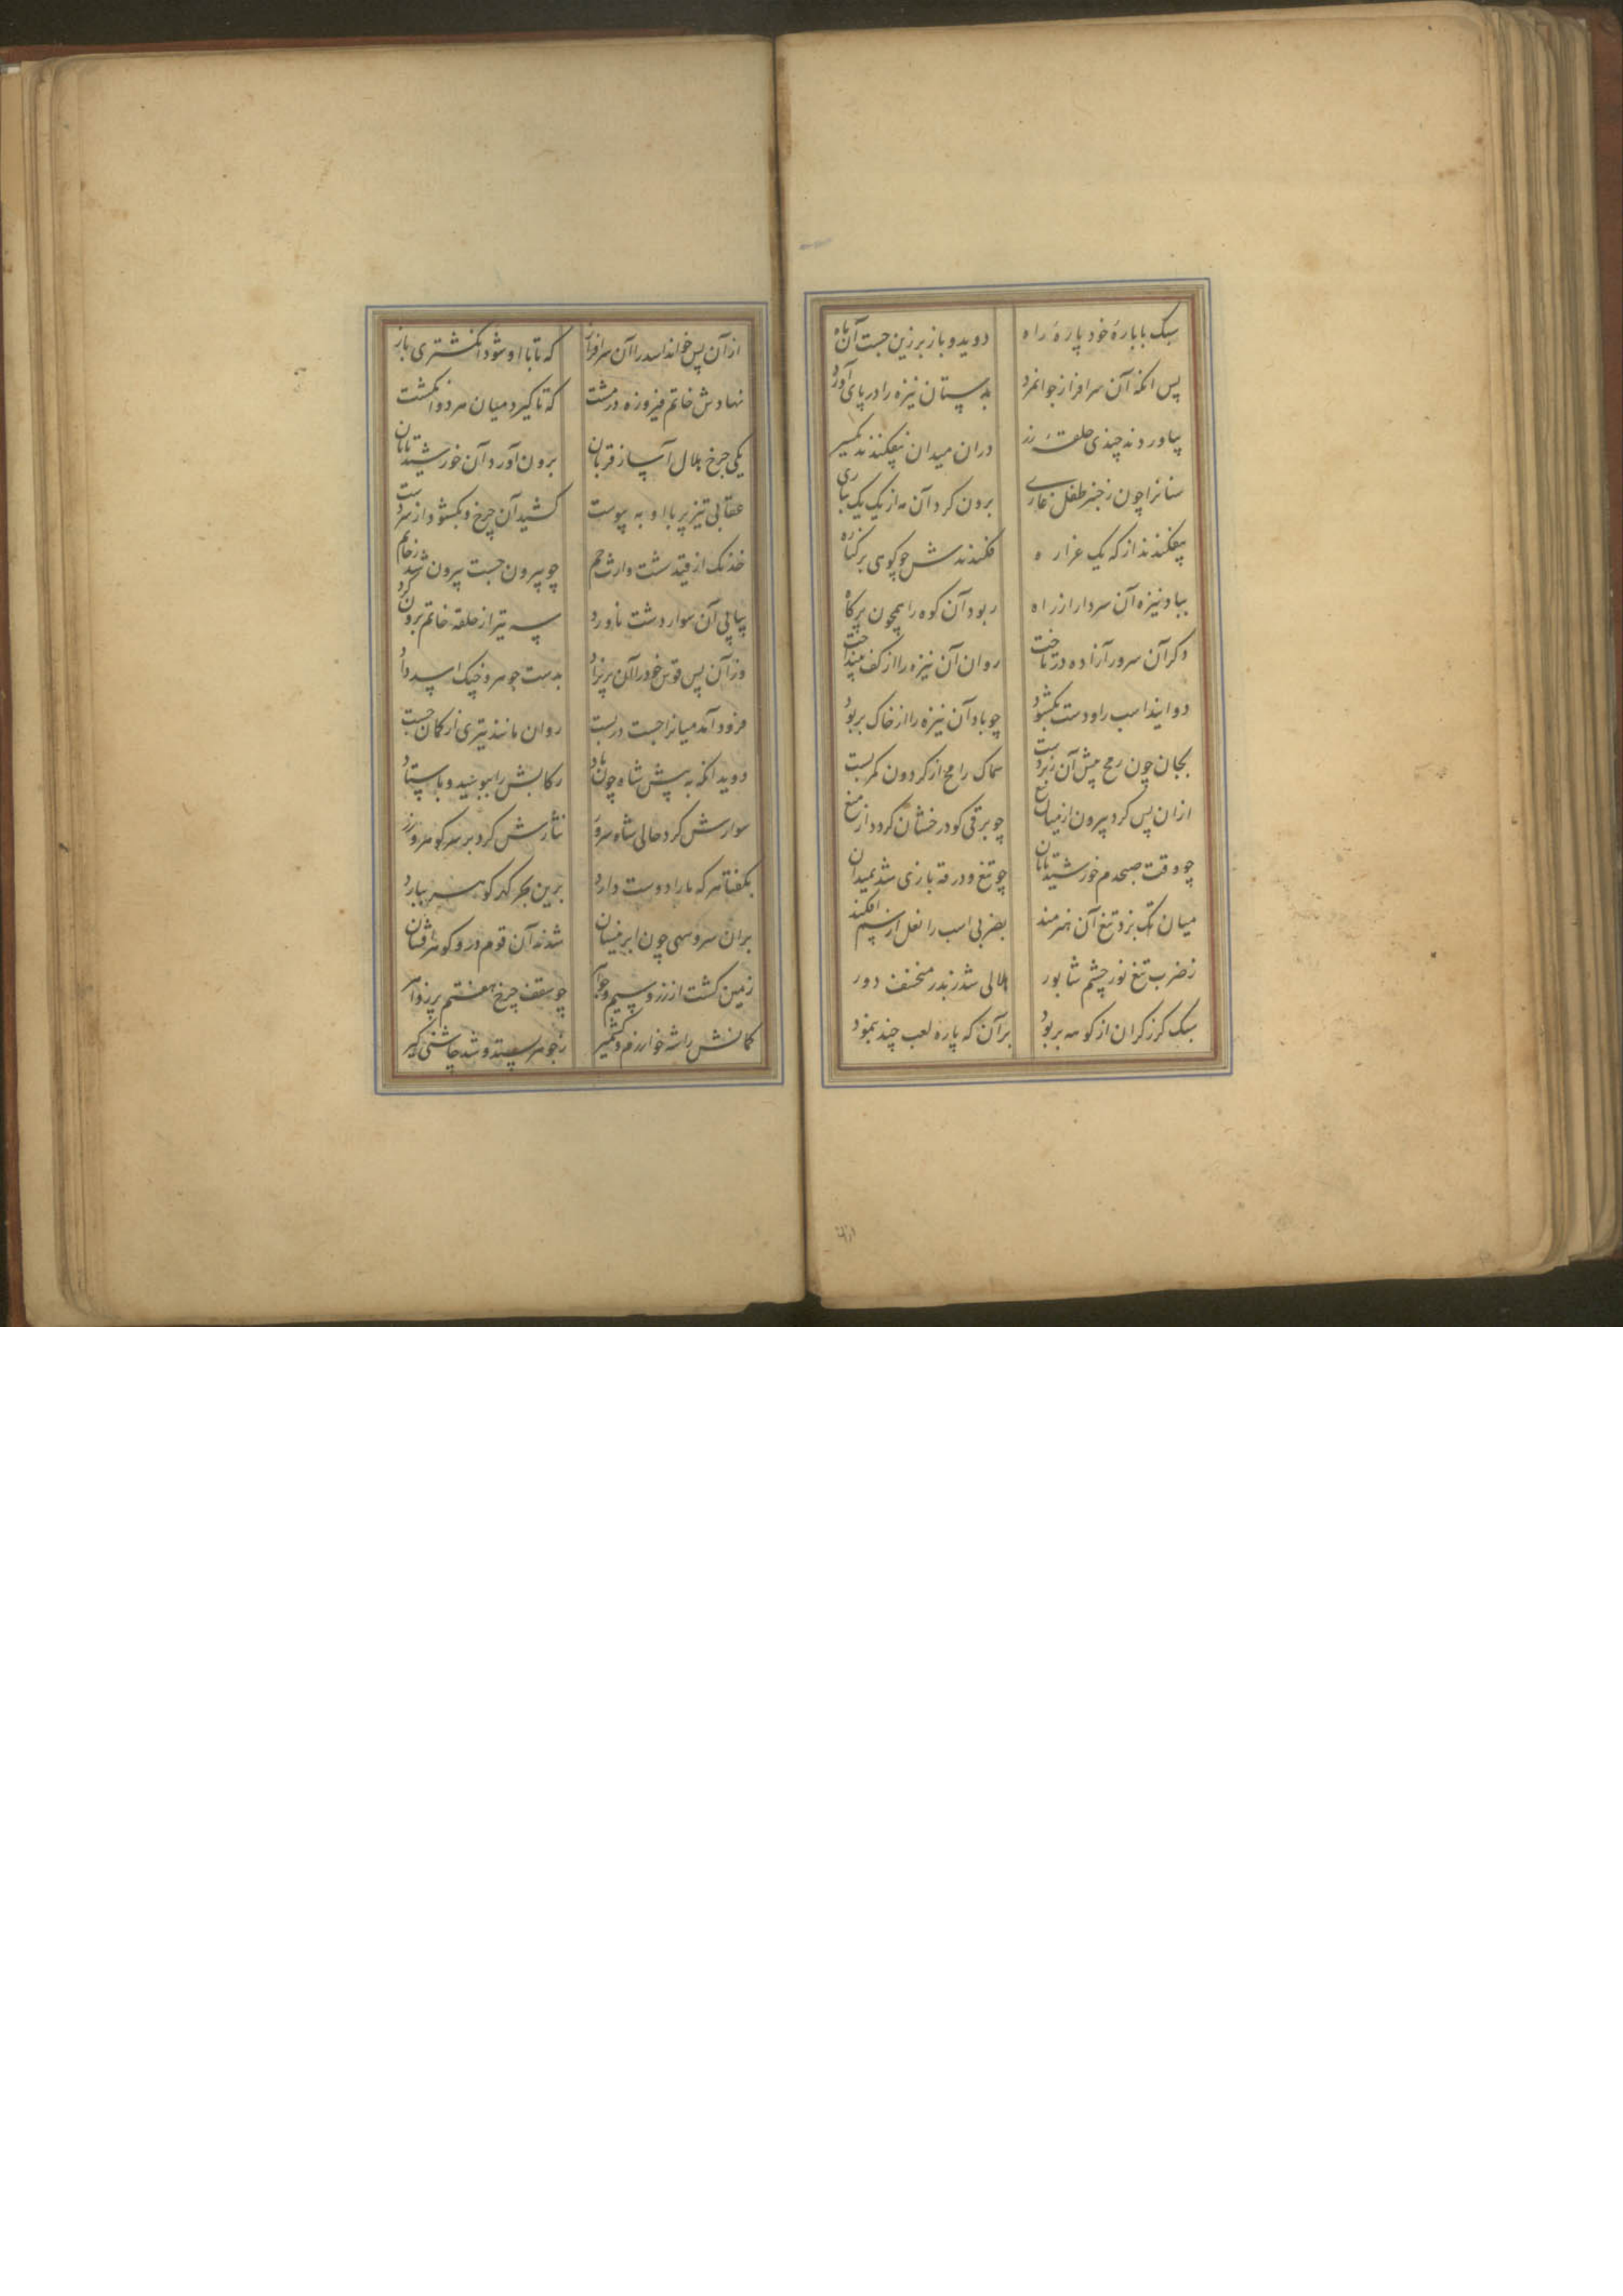 سبک با بارهٔ خود پارهٔ راه دوید و باز بر زین جست آن ماه
پس انکه آن سرافراز جوانمرد بدستان نیزه را در پای آورد
بیاوردند چندی حلقهٔ زر دران میدان بیفکندند یکسر
سنانرا چون ز خنجر طفل عاری برون کرد آن مه از یک یک بیاری
بیفکندند از که یک غراره فکندندش چو کوی بر کناره
بباد نیزه آن سردار از راه ربود آن کوه را همچون پر کاه
دکر آن سرور آزاده در تاخت روان آن نیزه را از کف بینداخت
دوانید اسب را و دست بکشود چو باد آن نیزه را از خاک بربود
بجان چون رمح پیش آن زبردست سماک رامح از کردون کمر بست
ازان پس کرد بیرون از میان تیغ چو برقی کو درخشان کردد از میغ
چو وقت صبحدم خورشید تابان چو تیغ و درقه بازی شد بمیدان
میان تک بزد تیغ آن هنرمند بضربی اسب را نعل از سم افکند
ز ضرب تیغ نور چشم شابور هلالی شد ز بدر منخسف دور
سبک کرز کران از کوهه بربود بر آن که پاره لعب چند بنمود
از آن پس خواند اسد را آن سرافراز که تا با او شود انکشتری باز
نهادش خاتم فیروزه در مشت که تا کیرد میان هر دو انکشت
یکی چرخ هلال آسا ز قربان برون آورد آن خورشید تابان
عقابی تیزپر با او به پیوست کشید آن چرخ و بکشود از سر دست
خدنک از قید شست وارث جم چو بیرون جست بیرون شد ز خاتم
پیاپی آن سوار دشت ناورد سه تیر از حلقه خاتم برون کرد
وز آن پس قوس خود را آن پریزاد بدست جوهر و خپک اسد داد
فرود آمد میانرا جست در بست روان مانند تیری از کمان جست
دوید انکه به پیش شاه چون باد رکابش را ببوسید و باستاد
سوارش کرد حالی شاه سرور نثارش کرد بر سر کوهر و زر
بکفتا هر که ما را دوست دارد برین بحر کهر کوهر ببارد
بران سرو سهی چون ابر نیسان شدند آن قوم در و کوهرافشان
زمین کشت از زر و سیم و جواهر چو سقف چرخ هفتم پر زواهر
کمانش را شه خوارزم و کشمیر ز جوهر بستد و شد چاشنی کیر